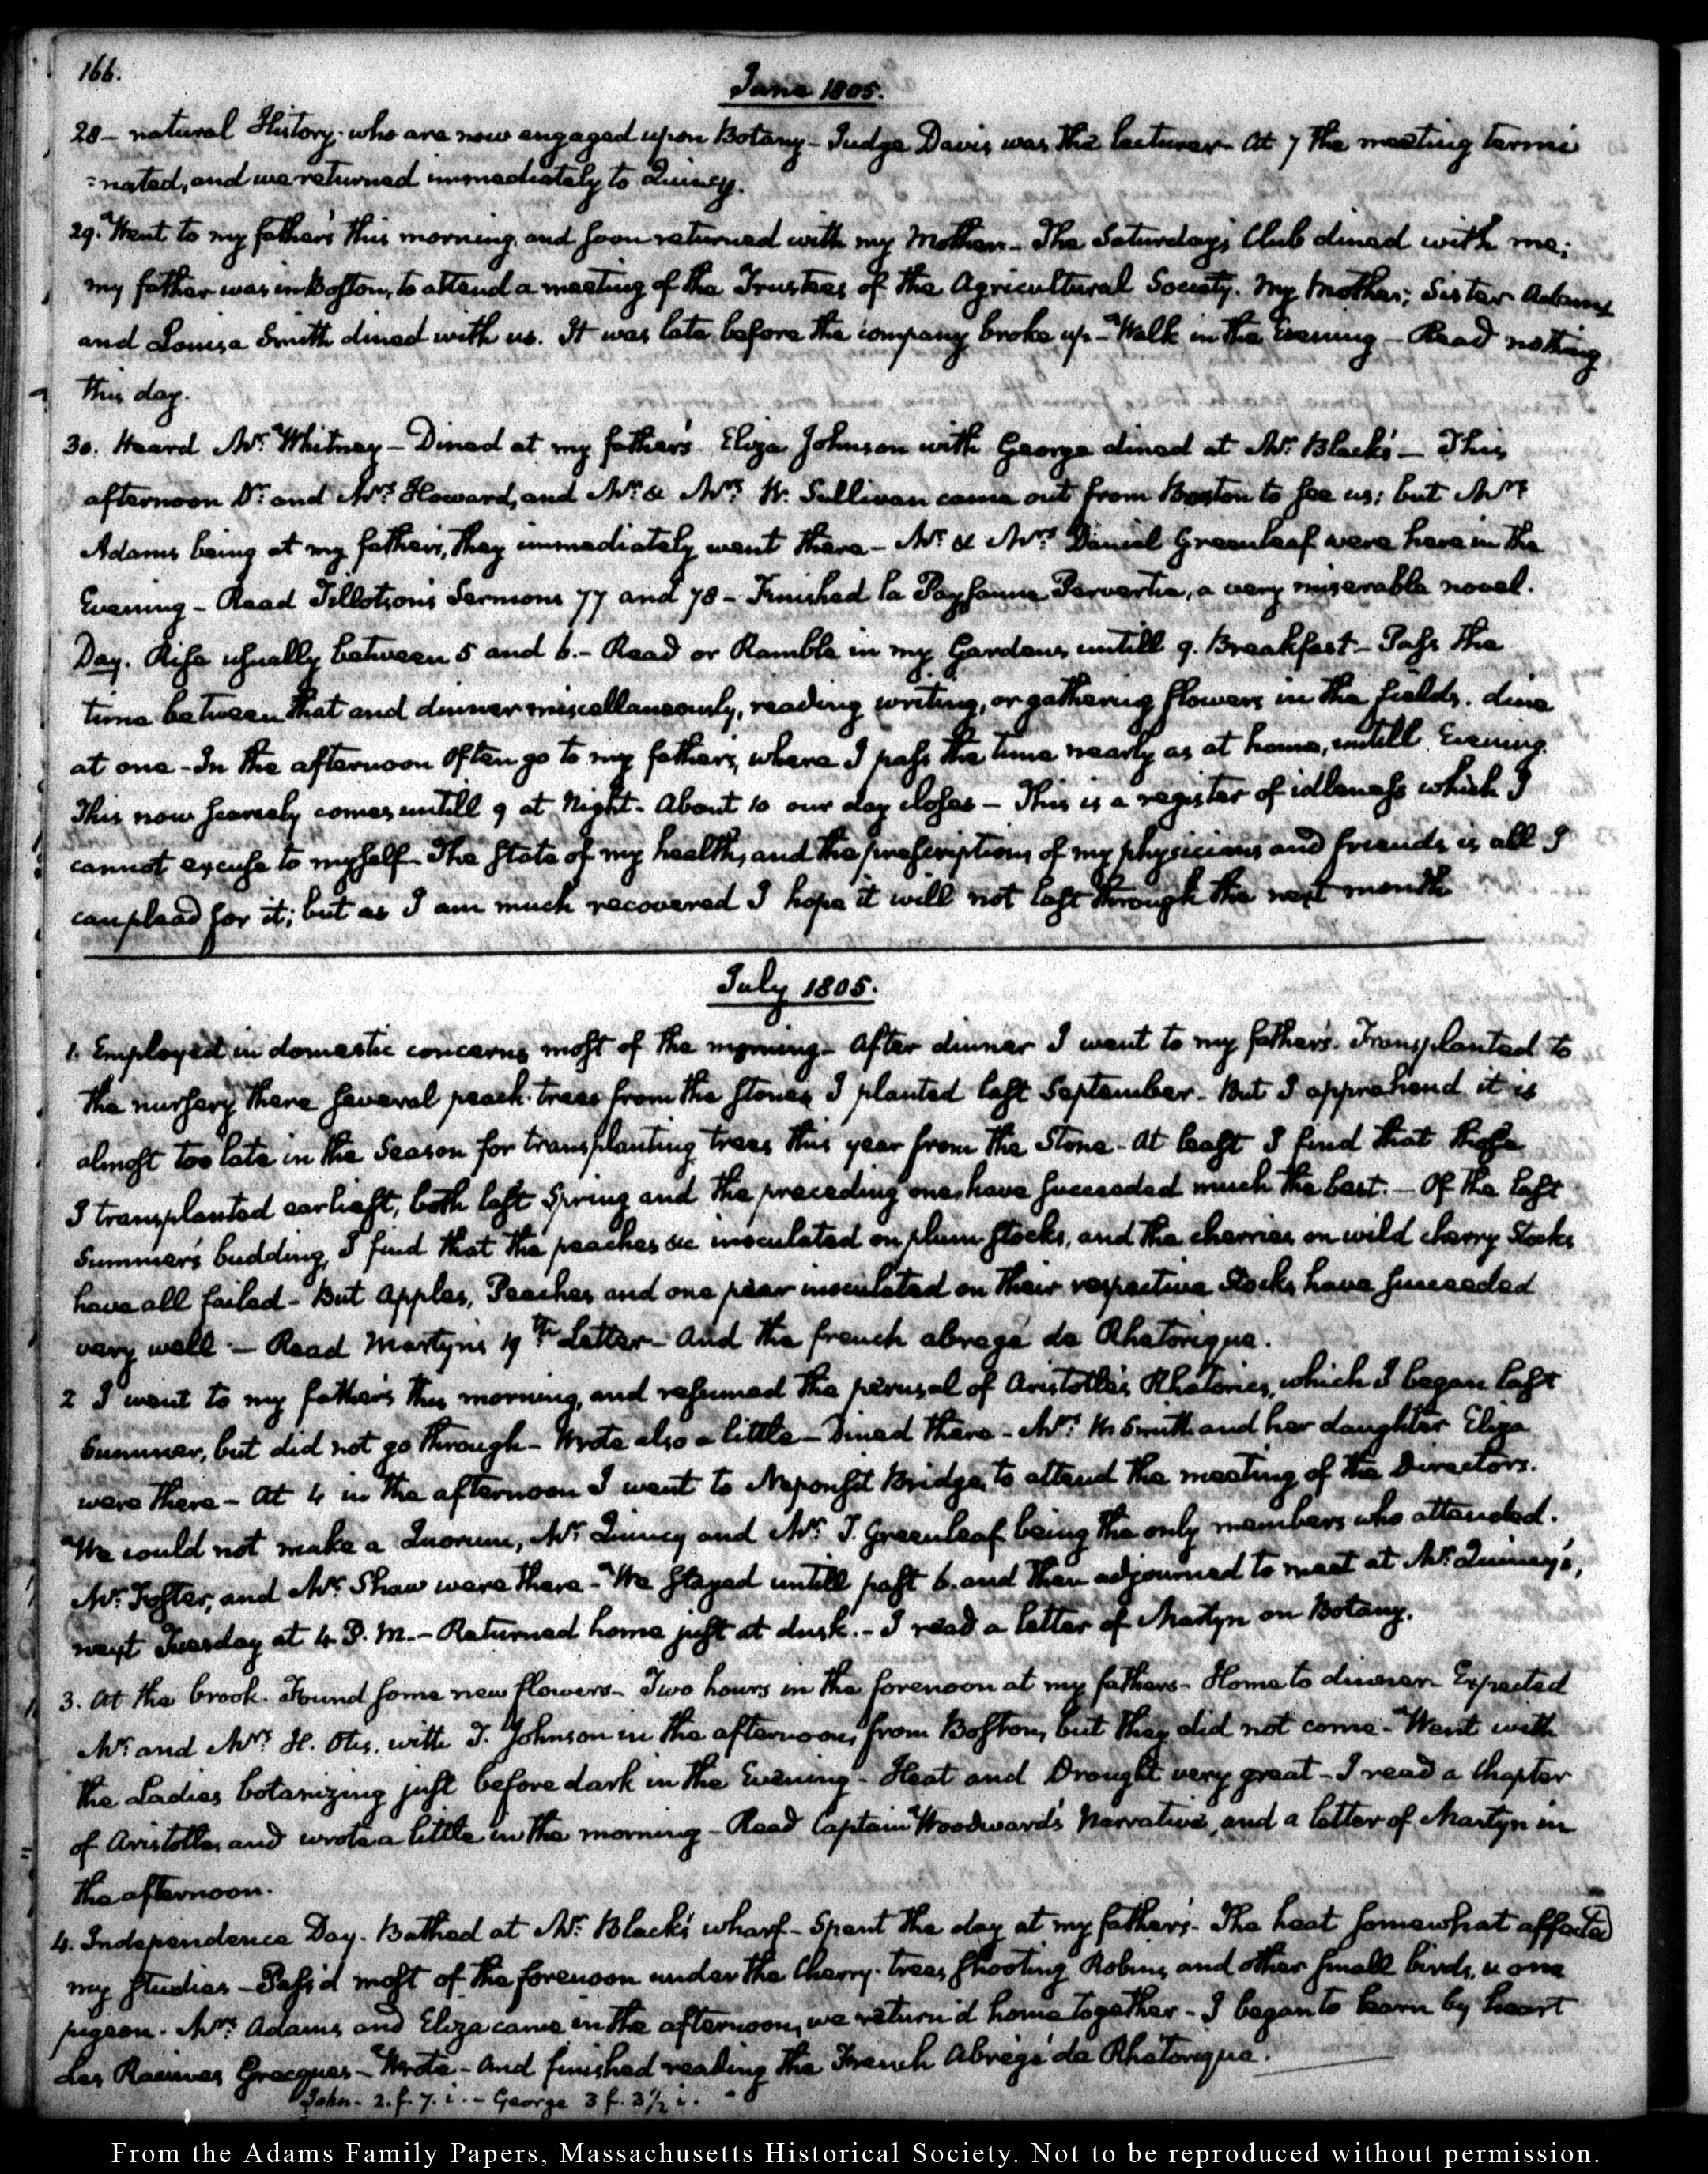 166.
June 1805.
28 – natural History; who are now engaged upon Botany – Judge Davis was the lecturer. At 7 the meeting termi
=nated, and we returned immediately to Quincy.
29. Went to my father's this morning, and soon returned with my Mother – The Saturday's Club dined with me;
my father was in Boston, to attend a meeting of the Trustees of the Agricultural Society. My Mother, Sister Adams
and Louisa Smith dined with us. It was late before the company broke up – Walk in the Evening – Read nothing
this day.
30. Heard Mr. Whitney – Dined at my father's. Eliza Johnson with George dined at Mr. Black's – This
afternoon Dr. and Mrs. Howard, and Mr. & Mrs. W. Sullivan came out from Boston to see us; but Mrs.
Adams being at my father's, they immediately went there – Mr. & Mrs. Daniel Greenleaf were here in the
Evening – Read Tillotson's Sermons 77 and 78 – Finished la Paysanne Pervertie, a very miserable novel.
Day. Rise usually between 5 and 6. – Read or Ramble in my Gardens untill 9. Breakfast – Pass the
time between that and dinner miscellaneously, reading writing, or gathering flowers in the fields. dine
at one – In the afternoon often go to my father's, where I pass the time nearly as at home, untill Evening.
This now scarcely comes untill 9 at Night. About 10 our day closes – This is a register of idleness which I
cannot excuse to myself – The State of my health, and the prescriptions of my physicians and friends is all I
can plead for it; but as I am much recovered I hope it will not last through the next month
July 1805.
1. Employed in domestic concerns most of the morning – After dinner I went to my father's. Transplanted to
the nursery there several peach-trees from the stones I planted last September – But I apprehend it is
almost too late in the Season for transplanting trees this year from the Stone – At least I find that those
I transplanted earliest, both last Spring and the preceding one, have succeeded much the best. – Of the last
Summer's budding, I find that the peaches &c inoculated on plum stocks, and the cherries on wild cherry Stocks
have all failed – But Apples, Peaches and one pear inoculated on their respective Stocks have succeeded
very well – Read Martyn's 19th Letter – And the french abregé de Rhetorique.
2 I went to my father's this morning, and resumed the perusal of Aristotle's Rhetorics, which I began last
Summer, but did not go through – Wrote also a little – Dined there – Mrs. W. Smith and her daughter Eliza
were there – At 4 in the afternoon I went to Neponset Bridge, to attend the meeting of the Directors.
We could not make a Quorum, Mr. Quincy and Mr. T. Greenleaf being the only members who attended.
Mr. Foster, and Mr. Shaw were there – We stayed untill past 6. and then adjourned to meet at Mr. Quincy's,
next Tuesday at 4 P.M. – Returned home just at dusk. – I read a letter of Martyn on Botany.
3. At the brook. Found some new flowers – Two hours in the forenoon at my father's – Home to dinner – Expected
Mr. and Mrs. H. Otis, with T. Johnson in the afternoon, from Boston, but they did not come – Went with
the Ladies botanizing just before dark in the Evening – Heat and Drought very great – I read a Chapter
of Aristotle, and wrote a little in the morning – Read Captain Woodward's Narrative, and a letter of Martyn in
the afternoon.
4. Independence Day. Bathed at Mr. Black's wharf – Spent the day at my father's. The heat somewhat affected
my studies – Pass'd most of the forenoon under the Cherry-trees, shooting Robins, and other small birds, & one
pigeon. Mrs. Adams and Eliza came in the afternoon, we return'd home together – I began to learn by heart
Les Racines Grecques – Wrote – And finished reading the French Abregé de Rhetorique.
John – 2. f. 7. i. – George 3 f. 3½ i.
From the Adams Family Papers, Massachusetts Historical Society. Not to be reproduced without permission.